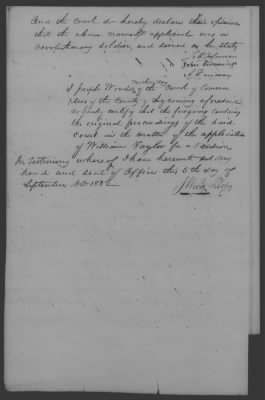 And the court do hereby declare their opinion
that the above named applicant was a
revolutionary soldier, and served as he states
John Cummings
I Joseph Wood of the Court of Common
Pleas of the County of Lycoming aforesaid
do hereby certify that the foregoing contains
the original proceedings of the said
Court in the matter of the application
of William Taylor for a Pension
In Testimony whereof I have hereunto set my
hand and seal of Office this 5th day of
September AD